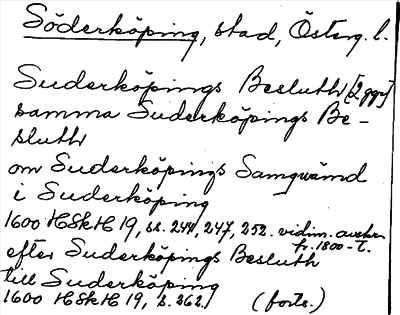 Söderköping, stad, Österg. l.
Suderköpings Besluth [2 ggr]
samma Suderköpings Be-
sluth
om Suderköpings Samqwämd
i Suderköping
1600 HSkH 19, ss. 244, 247, 252. vidim. avskr.
fr. 1800-t.
efter Suderköpings Besluth
till Suderköping
1600 HSkH 19, s. 262.
(forts.)